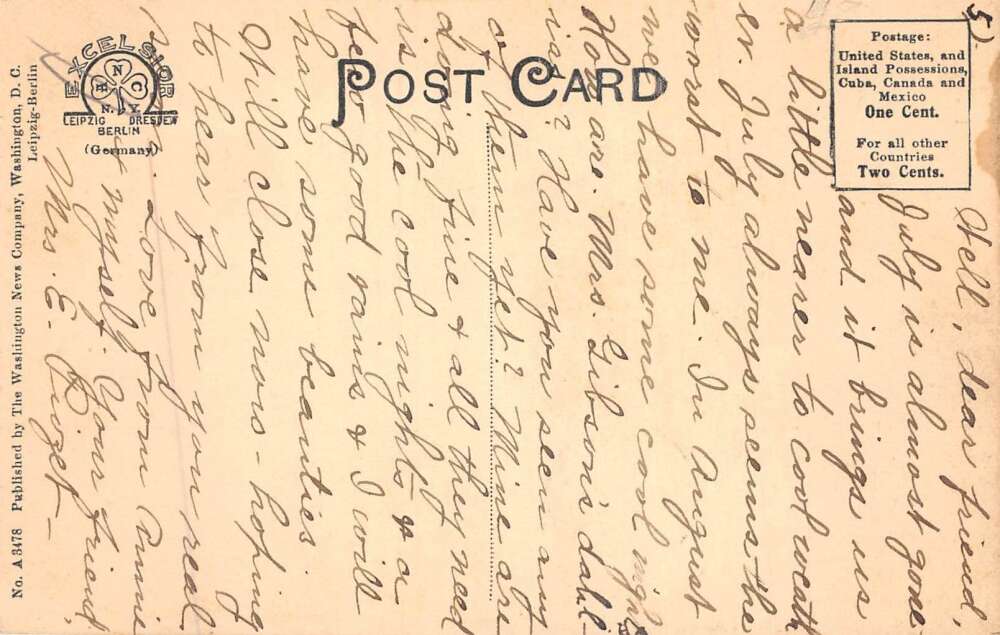 5)
Well, dear friend,
July is almost gone
and it brings us
a little nearer to cool weath
er. July always seems the
worst to me. In August
we have some cool nights
How are Mrs. Gibson's dahl-
ias? Have you seen any
of them yet? Mine are
doing fine & all they need
is the cool nights & a
few good rains & I will
have some beauties.
Will close now - hoping
to hear from you real
Love from Annie
& myself. Your friend,
Mrs. E.
POST CARD
Postage:
United States, and
Island Possessions,
Cuba, Canada and
Mexico
One Cent.
For all other
Countries
Two Cents.
EXCELSIOR
N.Y.
LEIPZIG DRESDEN
BERLIN
(Germany)
No. A 3478 Published by The Washington News Company, Washington, D. C.
Leipzig-Berlin